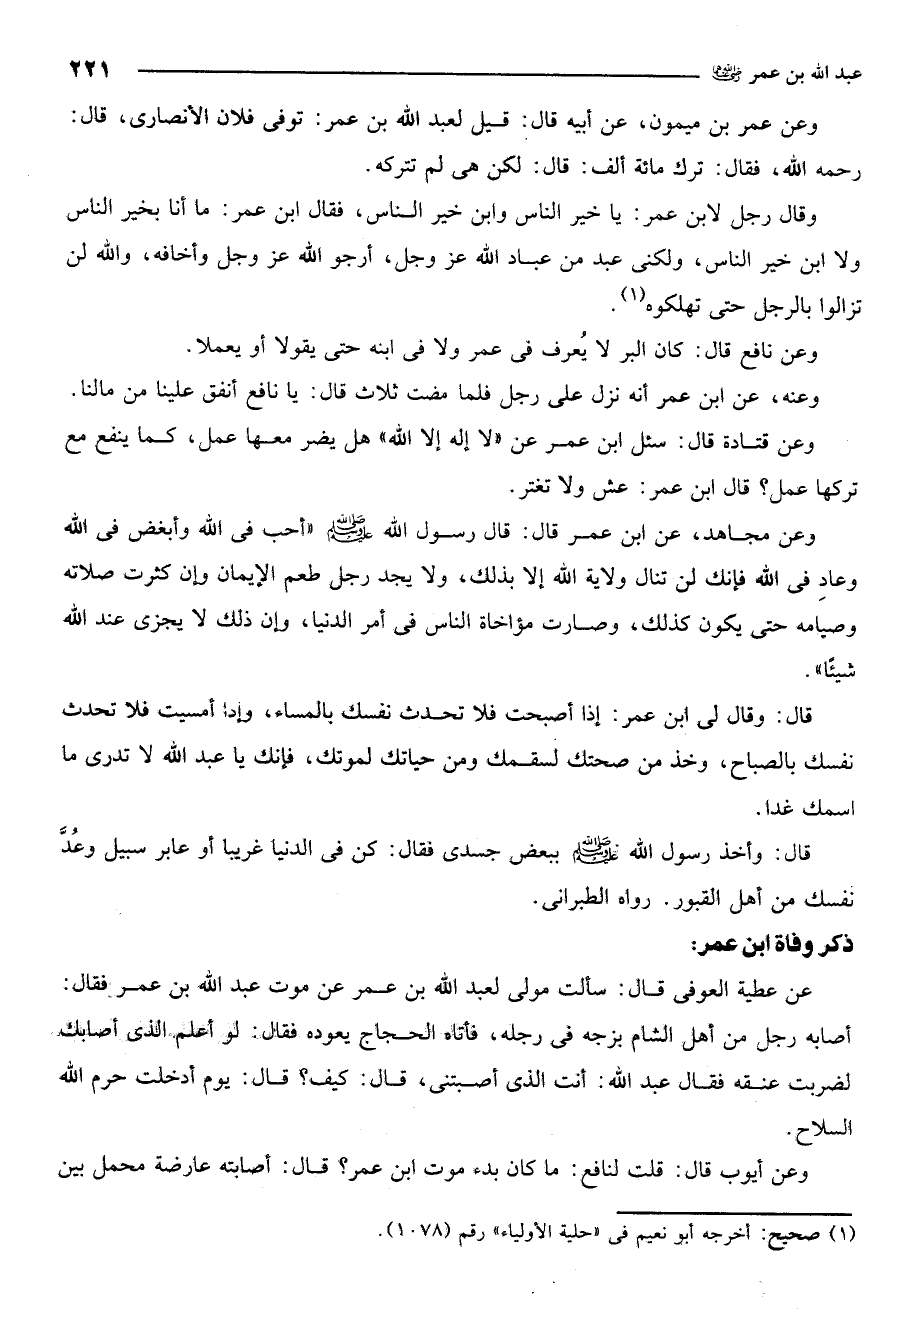 عبد الله بن عمر رضي الله عنهما ٢٢١
وعن عمر بن ميمون، عن أبيه قال: قيل لعبد الله بن عمر: توفى فلان الأنصارى، قال:
رحمه الله، فقال: ترك مائة ألف: قال: لكن هى لم تتركه.
وقال رجل لابن عمر: يا خير الناس وابن خير الناس، فقال ابن عمر: ما أنا بخير الناس
ولا ابن خير الناس، ولكنى عبد من عباد الله عز وجل، أرجو الله عز وجل وأخافه، والله لن
تزالوا بالرجل حتى تهلكوه(١).
وعن نافع قال: كان البر لا يُعرف فى عمر ولا فى ابنه حتى يقولا أو يعملا.
وعنه، عن ابن عمر أنه نزل على رجل فلما مضت ثلاث قال: يا نافع أنفق علينا من مالنا.
وعن قتادة قال: سئل ابن عمر عن «لا إله إلا الله» هل يضر معها عمل، كما ينفع مع
تركها عمل؟ قال ابن عمر: عش ولا تغتر.
وعن مجاهد، عن ابن عمر قال: قال رسول الله ﷺ «أحب فى الله وأبغض فى الله
وعادِ فى الله فإنك لن تنال ولاية الله إلا بذلك، ولا يجد رجل طعم الإيمان وإن كثرت صلاته
وصيامه حتى يكون كذلك، وصارت مؤاخاة الناس فى أمر الدنيا، وإن ذلك لا يجزى عند الله
شيئًا».
قال: وقال لى ابن عمر: إذا أصبحت فلا تحدث نفسك بالمساء، وإذا أمسيت فلا تحدث
نفسك بالصباح، وخذ من صحتك لسقمك ومن حياتك لموتك، فإنك يا عبد الله لا تدرى ما
اسمك غدا.
قال: وأخذ رسول الله ﷺ ببعض جسدى فقال: كن فى الدنيا غريبا أو عابر سبيل وعُدَّ
نفسك من أهل القبور. رواه الطبرانى.
ذكر وفاة ابن عمر:
عن عطية العوفى قال: سألت مولى لعبد الله بن عمر عن موت عبد الله بن عمر فقال:
أصابه رجل من أهل الشام بزجه فى رجله، فأتاه الحجاج يعوده فقال: لو أعلم الذى أصابك
لضربت عنقه فقال عبد الله: أنت الذى أصبتنى، قال: كيف؟ قال: يوم أدخلت حرم الله
السلاح.
وعن أيوب قال: قلت لنافع: ما كان بدء موت ابن عمر؟ قال: أصابته عارضة محمل بين
(١) صحيح: أخرجه أبو نعيم فى «حلية الأولياء» رقم (١٠٧٨).